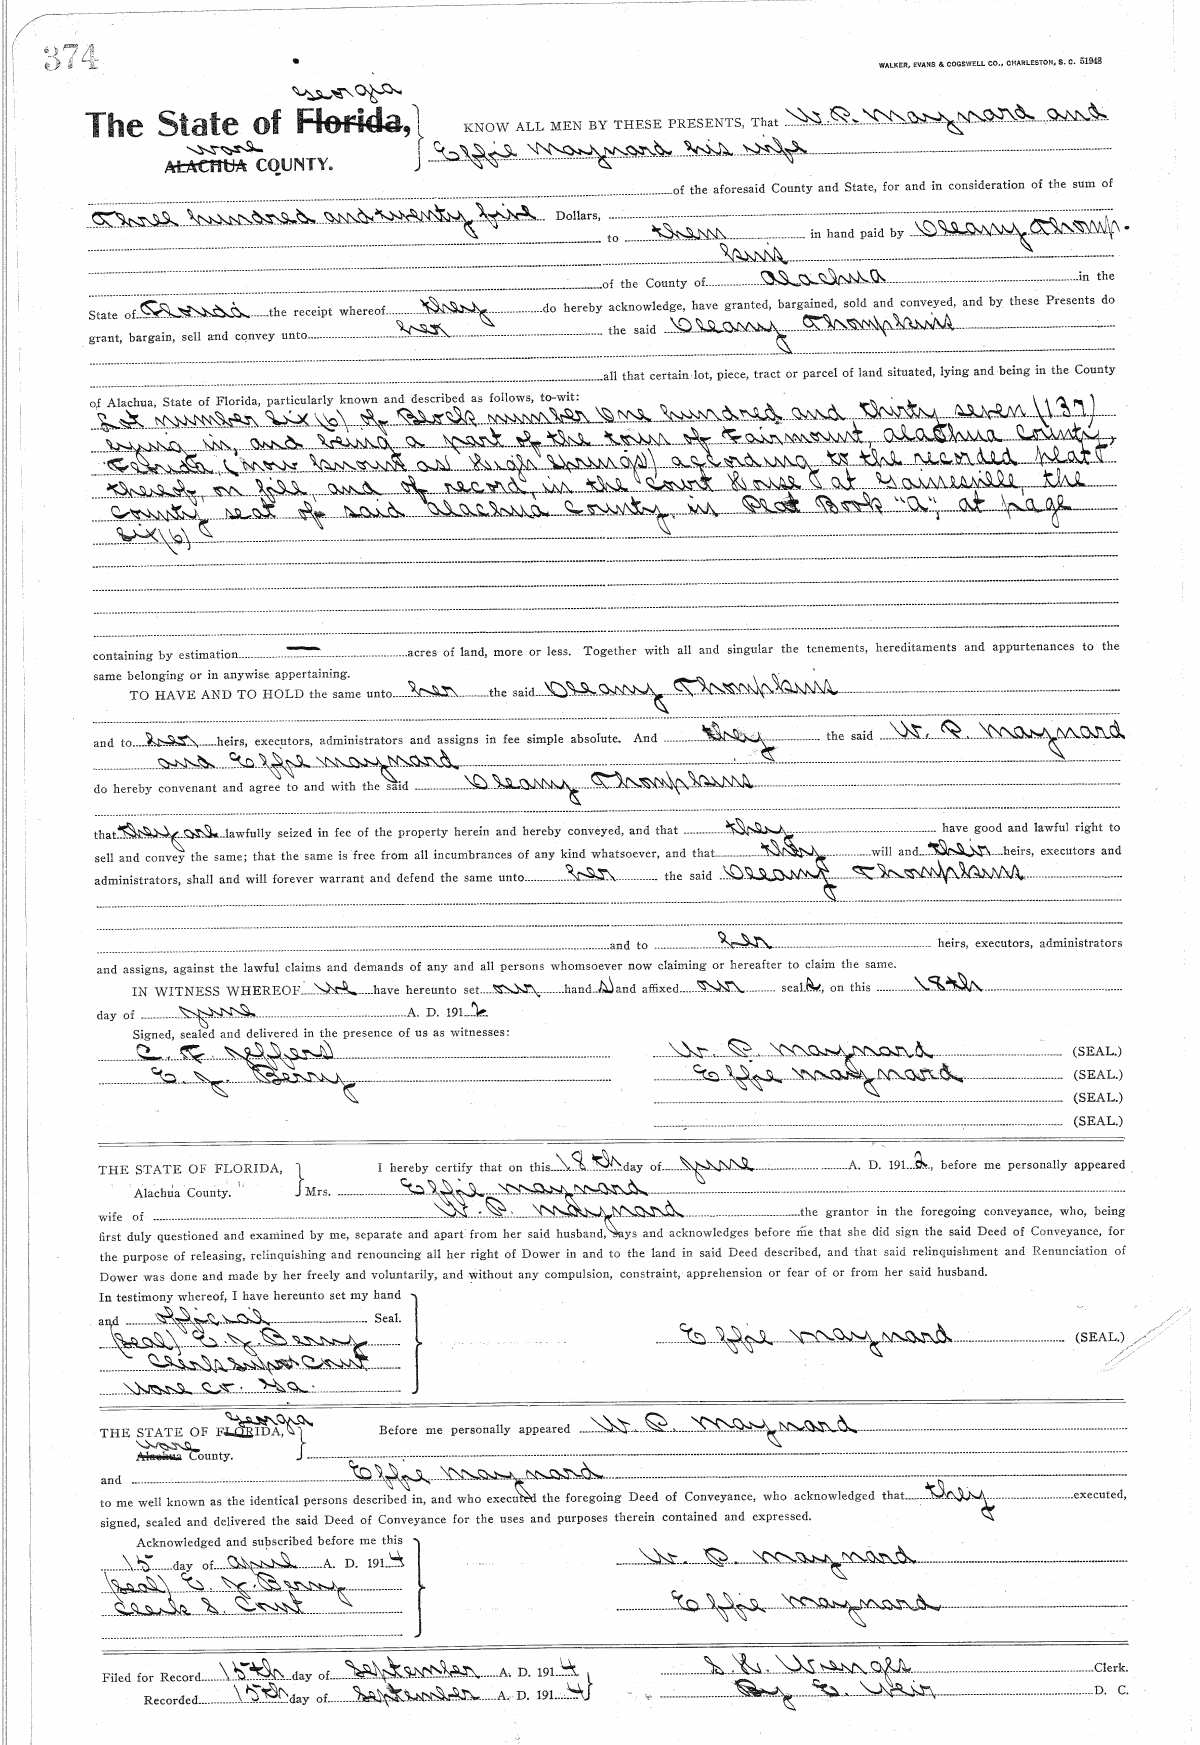 374
WALKER, EVANS & COGSWELL CO., CHARLESTON, S. C. 51948
Georgia
The State of Florida,
KNOW ALL MEN BY THESE PRESENTS, That W. P. Maynard and
Ware
ALACHUA COUNTY.
Effie Maynard his wife
of the aforesaid County and State, for and in consideration of the sum of
Three hundred and twenty five Dollars,
to them in hand paid by Oleamy Thomp-
kins
of the County of Alachua in the
State of Florida the receipt whereof they do hereby acknowledge, have granted, bargained, sold and conveyed, and by these Presents do
grant, bargain, sell and convey unto her the said Oleamy Thompkins
all that certain lot, piece, tract or parcel of land situated, lying and being in the County
of Alachua, State of Florida, particularly known and described as follows, to-wit:
Lot number Six (6) of Block number One hundred and thirty seven (137)
lying in, and being a part of the town of Fairmount, Alachua County,
Florida, (now known as High Springs) according to the recorded platt
thereof, on file, and of record, in the Court House at Gainesville, the
county seat of said Alachua County, in Plat Book "A", at page
Six (6)
containing by estimation — acres of land, more or less. Together with all and singular the tenements, hereditaments and appurtenances to the
same belonging or in anywise appertaining.
TO HAVE AND TO HOLD the same unto her the said Oleamy Thompkins
and to her heirs, executors, administrators and assigns in fee simple absolute. And they the said W. P. Maynard
and Effie Maynard
do hereby convenant and agree to and with the said Oleamy Thompkins
that they are lawfully seized in fee of the property herein and hereby conveyed, and that they have good and lawful right to
sell and convey the same; that the same is free from all incumbrances of any kind whatsoever, and that they will and their heirs, executors and
administrators, shall and will forever warrant and defend the same unto her the said Oleamy Thompkins
and to her heirs, executors, administrators
and assigns, against the lawful claims and demands of any and all persons whomsoever now claiming or hereafter to claim the same.
IN WITNESS WHEREOF we have hereunto set our hand s and affixed our seal s, on this 18th
day of June A. D. 1912
Signed, sealed and delivered in the presence of us as witnesses:
C. F. Jeffers W. P. Maynard (SEAL.)
E. J. Berry Effie Maynard (SEAL.)
(SEAL.)
(SEAL.)
THE STATE OF FLORIDA, I hereby certify that on this 18th day of June A. D. 1912, before me personally appeared
Alachua County. Mrs. Effie Maynard
wife of W. P. Maynard the grantor in the foregoing conveyance, who, being
first duly questioned and examined by me, separate and apart from her said husband, says and acknowledges before me that she did sign the said Deed of Conveyance, for
the purpose of releasing, relinquishing and renouncing all her right of Dower in and to the land in said Deed described, and that said relinquishment and Renunciation of
Dower was done and made by her freely and voluntarily, and without any compulsion, constraint, apprehension or fear of or from her said husband.
In testimony whereof, I have hereunto set my hand
and official Seal.
(Seal) E. J. Berry Effie Maynard (SEAL.)
Clerk Supor Court
Ware Co. Ga.
Georgia
THE STATE OF FLORIDA, Before me personally appeared W. P. Maynard
Ware
Alachua County.
and Effie Maynard
to me well known as the identical persons described in, and who executed the foregoing Deed of Conveyance, who acknowledged that they executed,
signed, sealed and delivered the said Deed of Conveyance for the uses and purposes therein contained and expressed.
Acknowledged and subscribed before me this
15 day of April A. D. 1914 W. P. Maynard
(Seal) E. J. Berry
Clerk S. Court Effie Maynard
Filed for Record 15th day of September A. D. 1914 S. H. Wienges Clerk.
Recorded 15th day of September A. D. 1914 By E. Weir D. C.